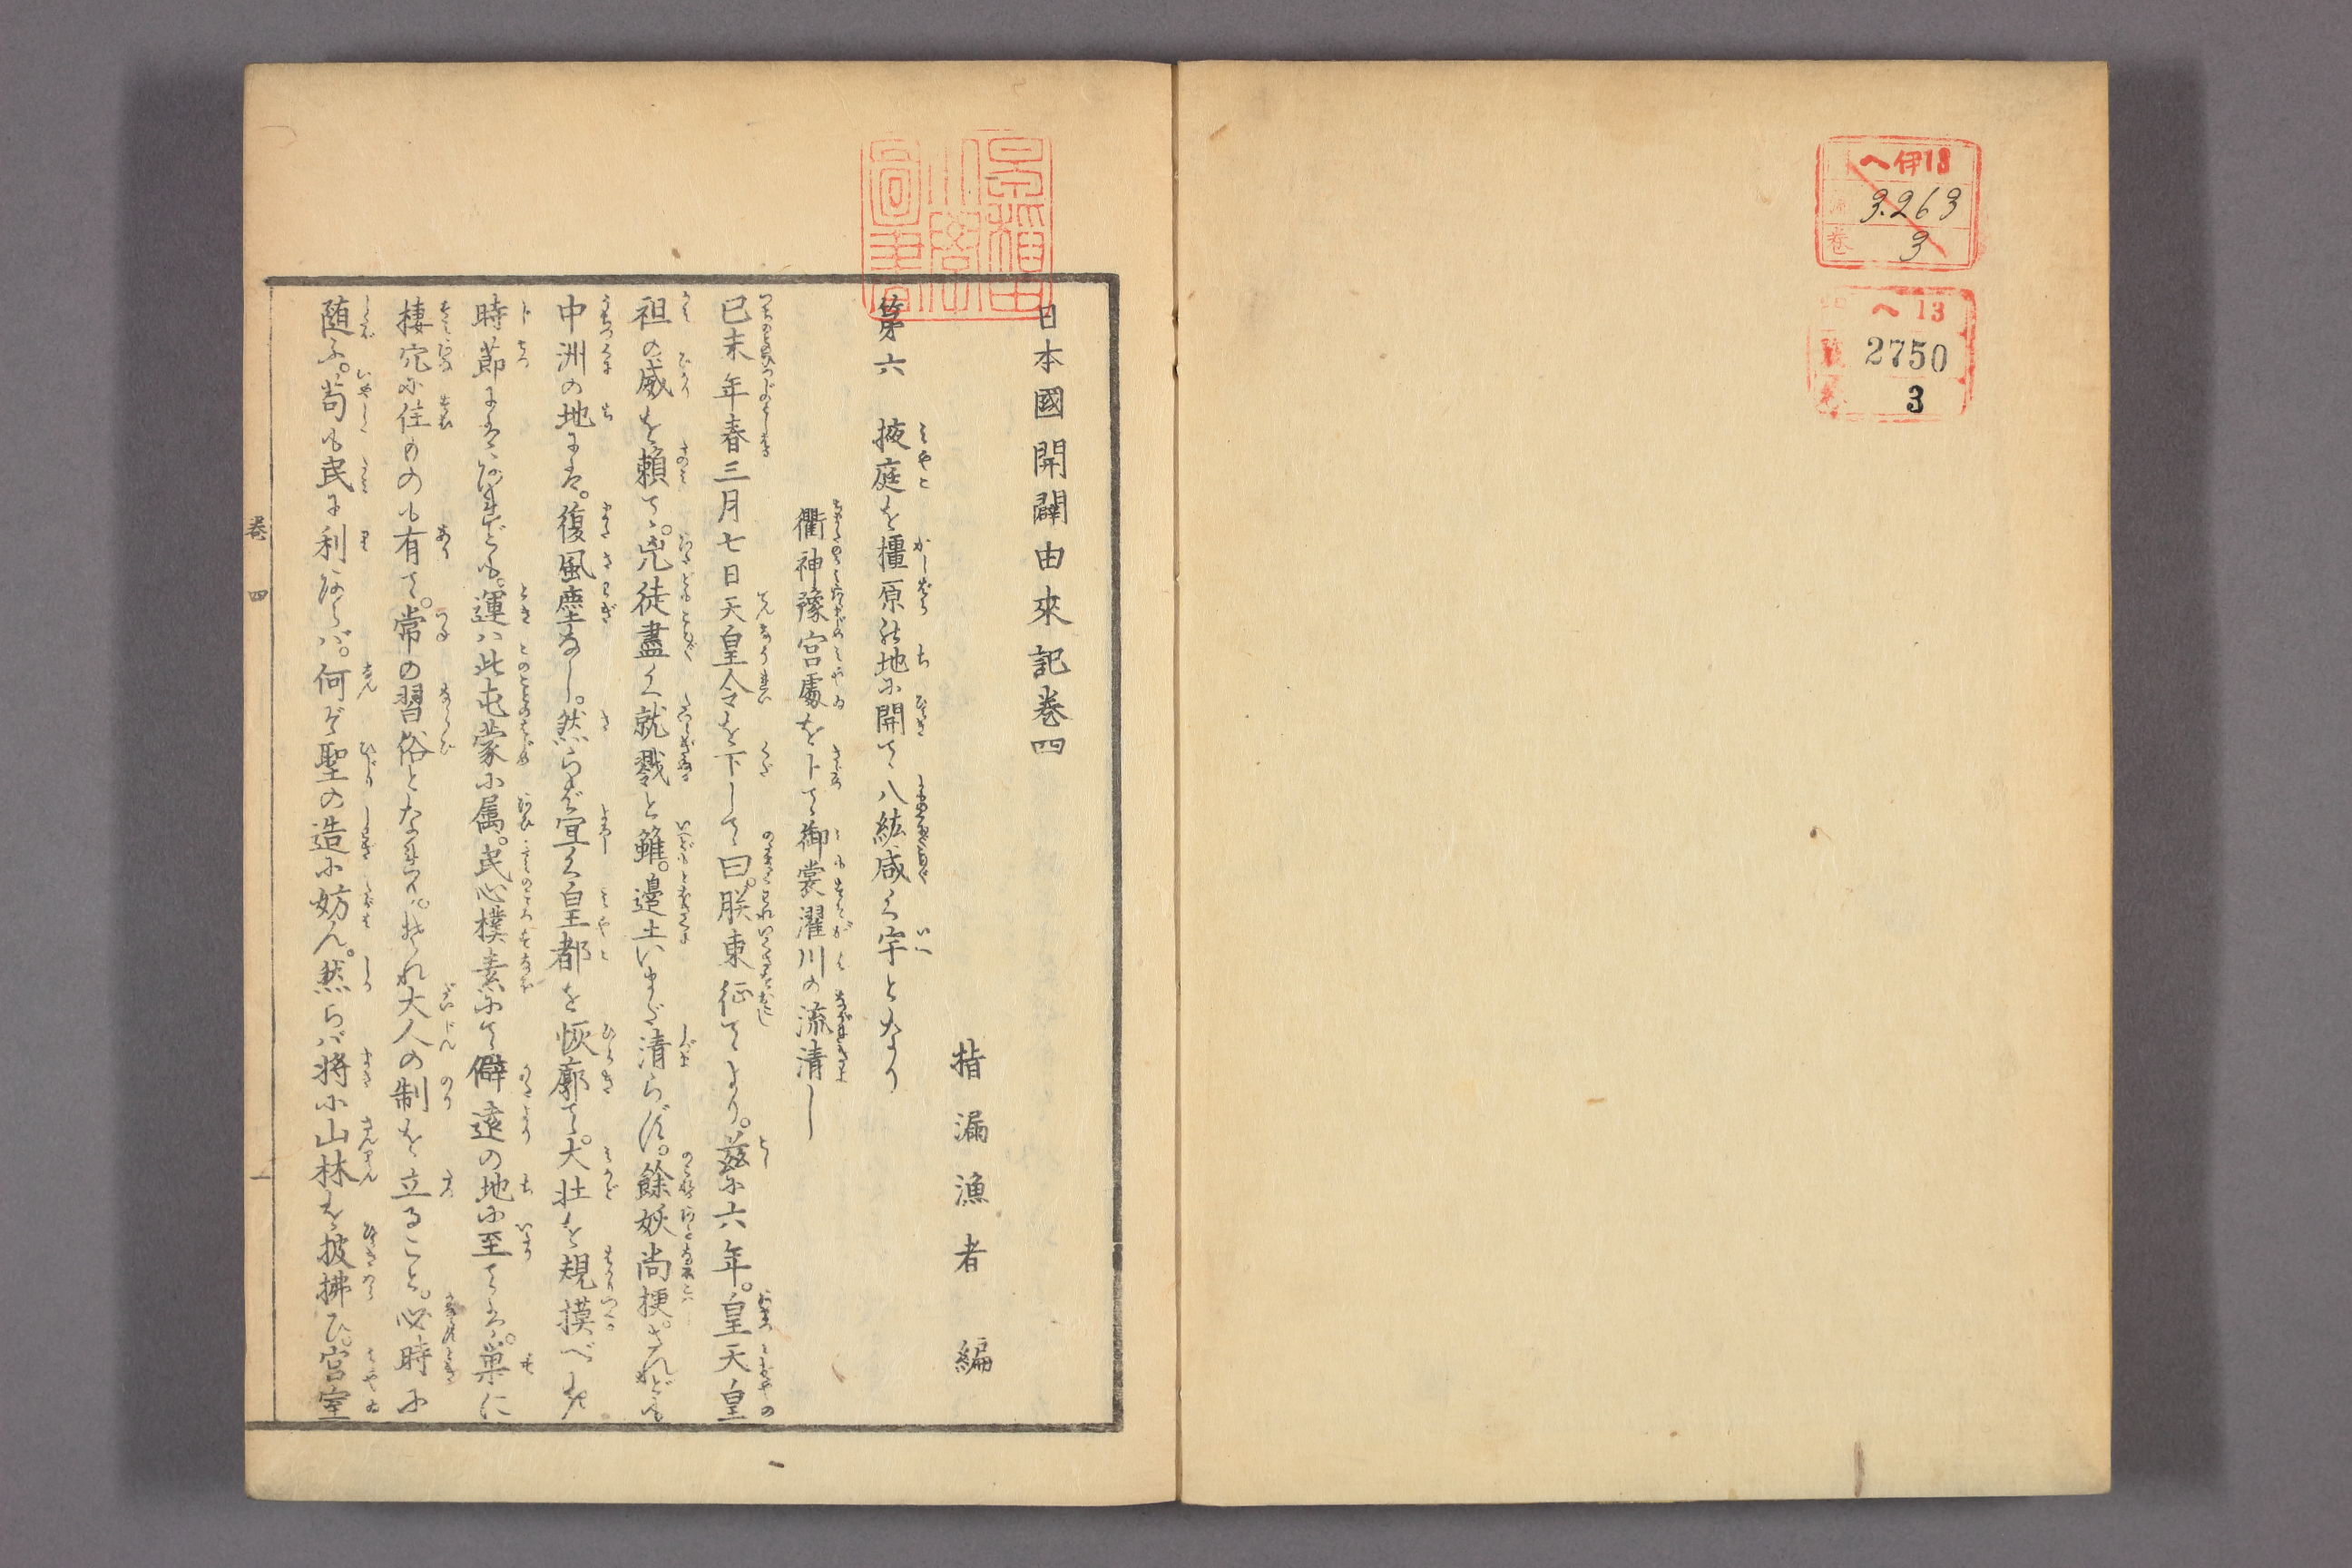 へ伊13
3.263
巻 3
へ 13
2750
3
早稲田
大學
圖書
日本國開闢由來記巻四
楷漏漁者 編
第六 掖庭を橿原の地に開て八紘咸く宇となり
衢神豫宮處を卜て御裳濯川の流清し
己未年春三月七日天皇令を下して曰。朕東征てより。茲に六年。皇天皇
祖の威を頼て。兇徒盡く就戮と雖。邉土いまだ清らず。餘妖尚梗。されども
中洲の地には。復風塵なし。然らば宜く皇都を恢廓て。大壮を規摸べき
時節にはあれども。運は此屯蒙に属。民心樸素にて僻遠の地に至ては。巣に
棲穴に住ものも有て。常の習俗となれり。それ大人の制を立ること。必時に
随ふ。苟も民に利あらば。何ぞ聖の造に妨ん。然らば将に山林を披拂ひ。宮室
巻四 一